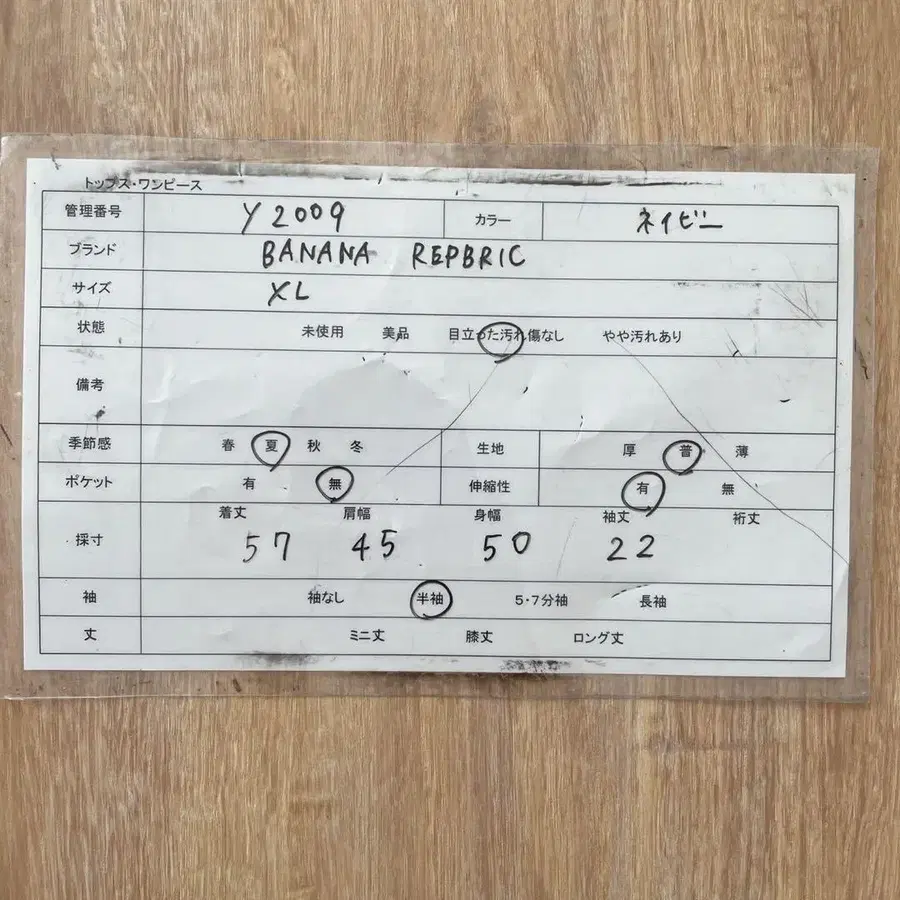 トップス・ワンピース
管理番号 Y2009 カラー ネイビー
ブランド BANANA REPBRIC
サイズ XL
状態 未使用 美品 目立った汚れ傷なし やや汚れあり
備考
季節感 春 夏 秋 冬 生地 厚 普 薄
ポケット 有 無 伸縮性 有 無
着丈 肩幅 身幅 袖丈 裄丈
採寸 57 45 50 22
袖 袖なし 半袖 5・7分袖 長袖
丈 ミニ丈 膝丈 ロング丈